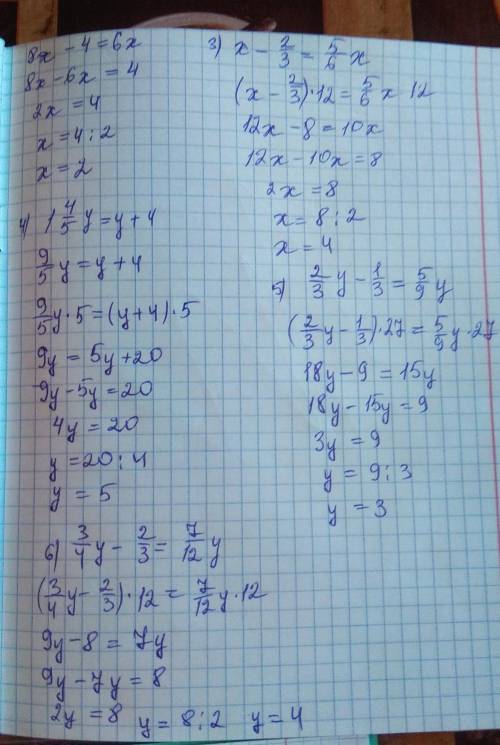 8x - 4 = 6x
8x - 6x = 4
2x = 4
x = 4 : 2
x = 2
3) x - 2/3 = 5/6 x
(x - 2/3) · 12 = 5/6 x · 12
12x - 8 = 10x
12x - 10x = 8
2x = 8
x = 8 : 2
x = 4
4) 1 4/5 y = y + 4
9/5 y = y + 4
9/5 y · 5 = (y + 4) · 5
9y = 5y + 20
9y - 5y = 20
4y = 20
y = 20 : 4
y = 5
5) 2/3 y - 1/3 = 5/9 y
(2/3 y - 1/3) · 27 = 5/9 y · 27
18y - 9 = 15y
18y - 15y = 9
3y = 9
y = 9 : 3
y = 3
6) 3/4 y - 2/3 = 7/12 y
(3/4 y - 2/3) · 12 = 7/12 y · 12
9y - 8 = 7y
9y - 7y = 8
2y = 8 y = 8 : 2 y = 4